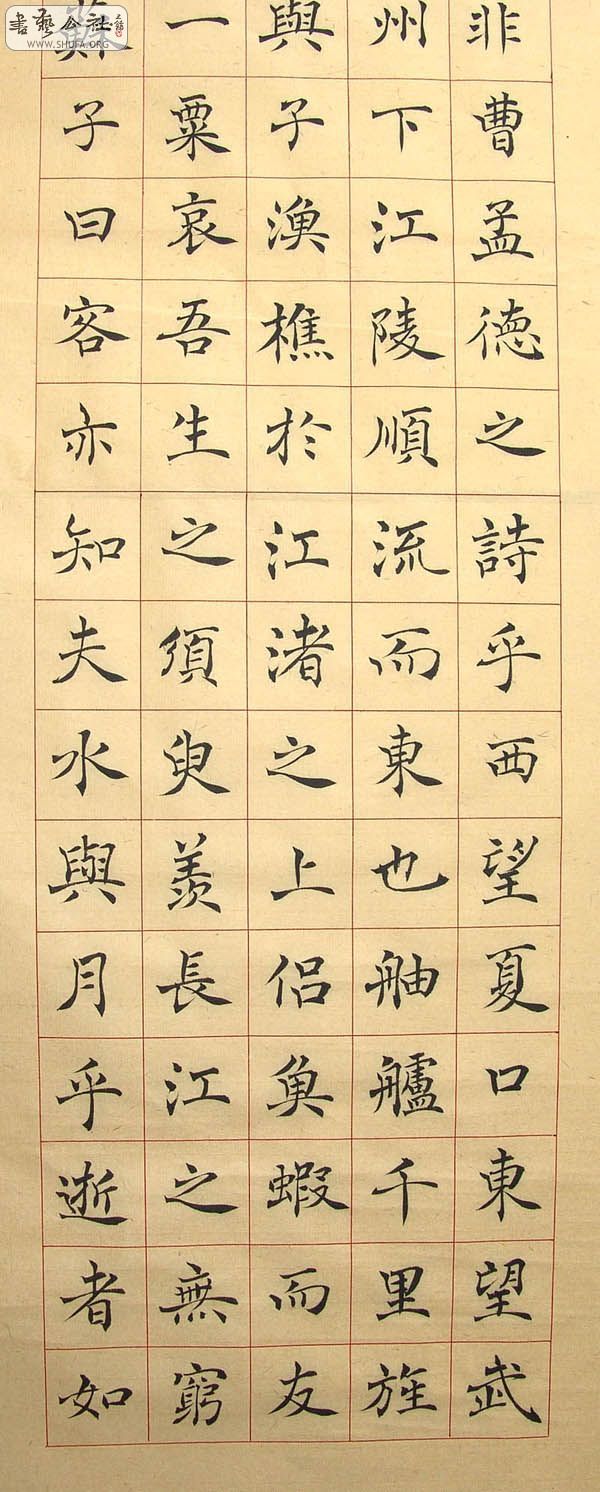 非曹孟德之詩乎西望夏口東望武
州下江陵順流而東也舳艫千里旌
與子漁樵於江渚之上侶魚蝦而友
一粟哀吾生之須臾羨長江之無窮
蘇子曰客亦知夫水與月乎逝者如
書藝公社
WWW.SHUFA.ORG